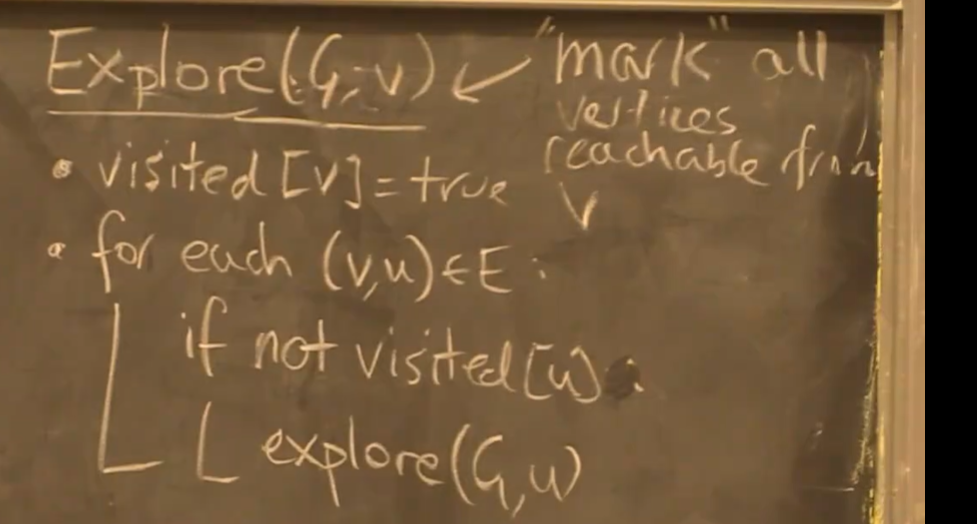 Explore(G,v) ← "mark" all
vertices
reachable from
v
• visited [v] = true
• for each (v,u) ∈ E :
if not visited [u] :
explore(G,u)